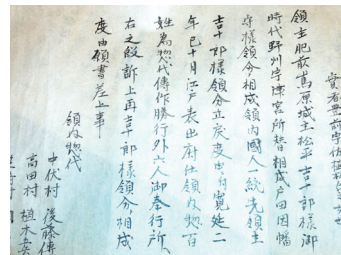 領主肥前嶌原城主松平吉十郎様御
時代野州宇津宮所替相成戸田因幡
守様領分相成領内國人一統先領主
吉十郎様領分立戻度由自寛延二
年巳十月江戸表出府仕領内惣百
姓為惣代傳作勝行外六人御奉行所、
右之段訴上再吉十郎様領分、相成
度由願書差上事
領内惣代
中伏村 後藤傳
高田村 植木